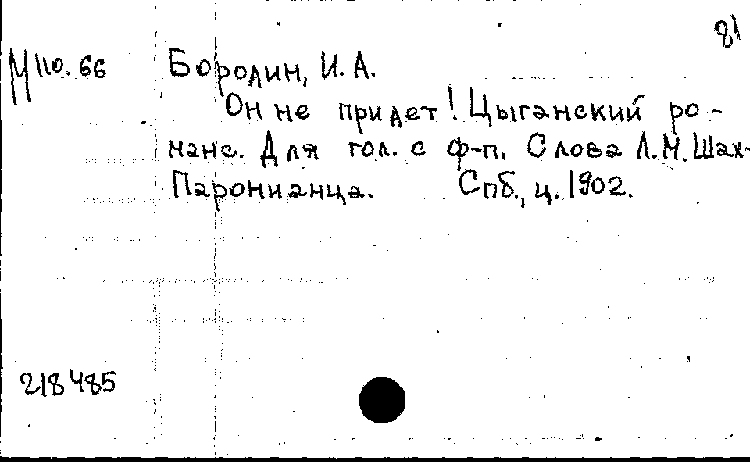 81
М110.66 Бородин, И.А.
Он не придет! Цыганский ро-
манс. Для гол. с ф-п. Слова Л.М. Шах-
Паронианца. Спб., ц. 1902.
218485